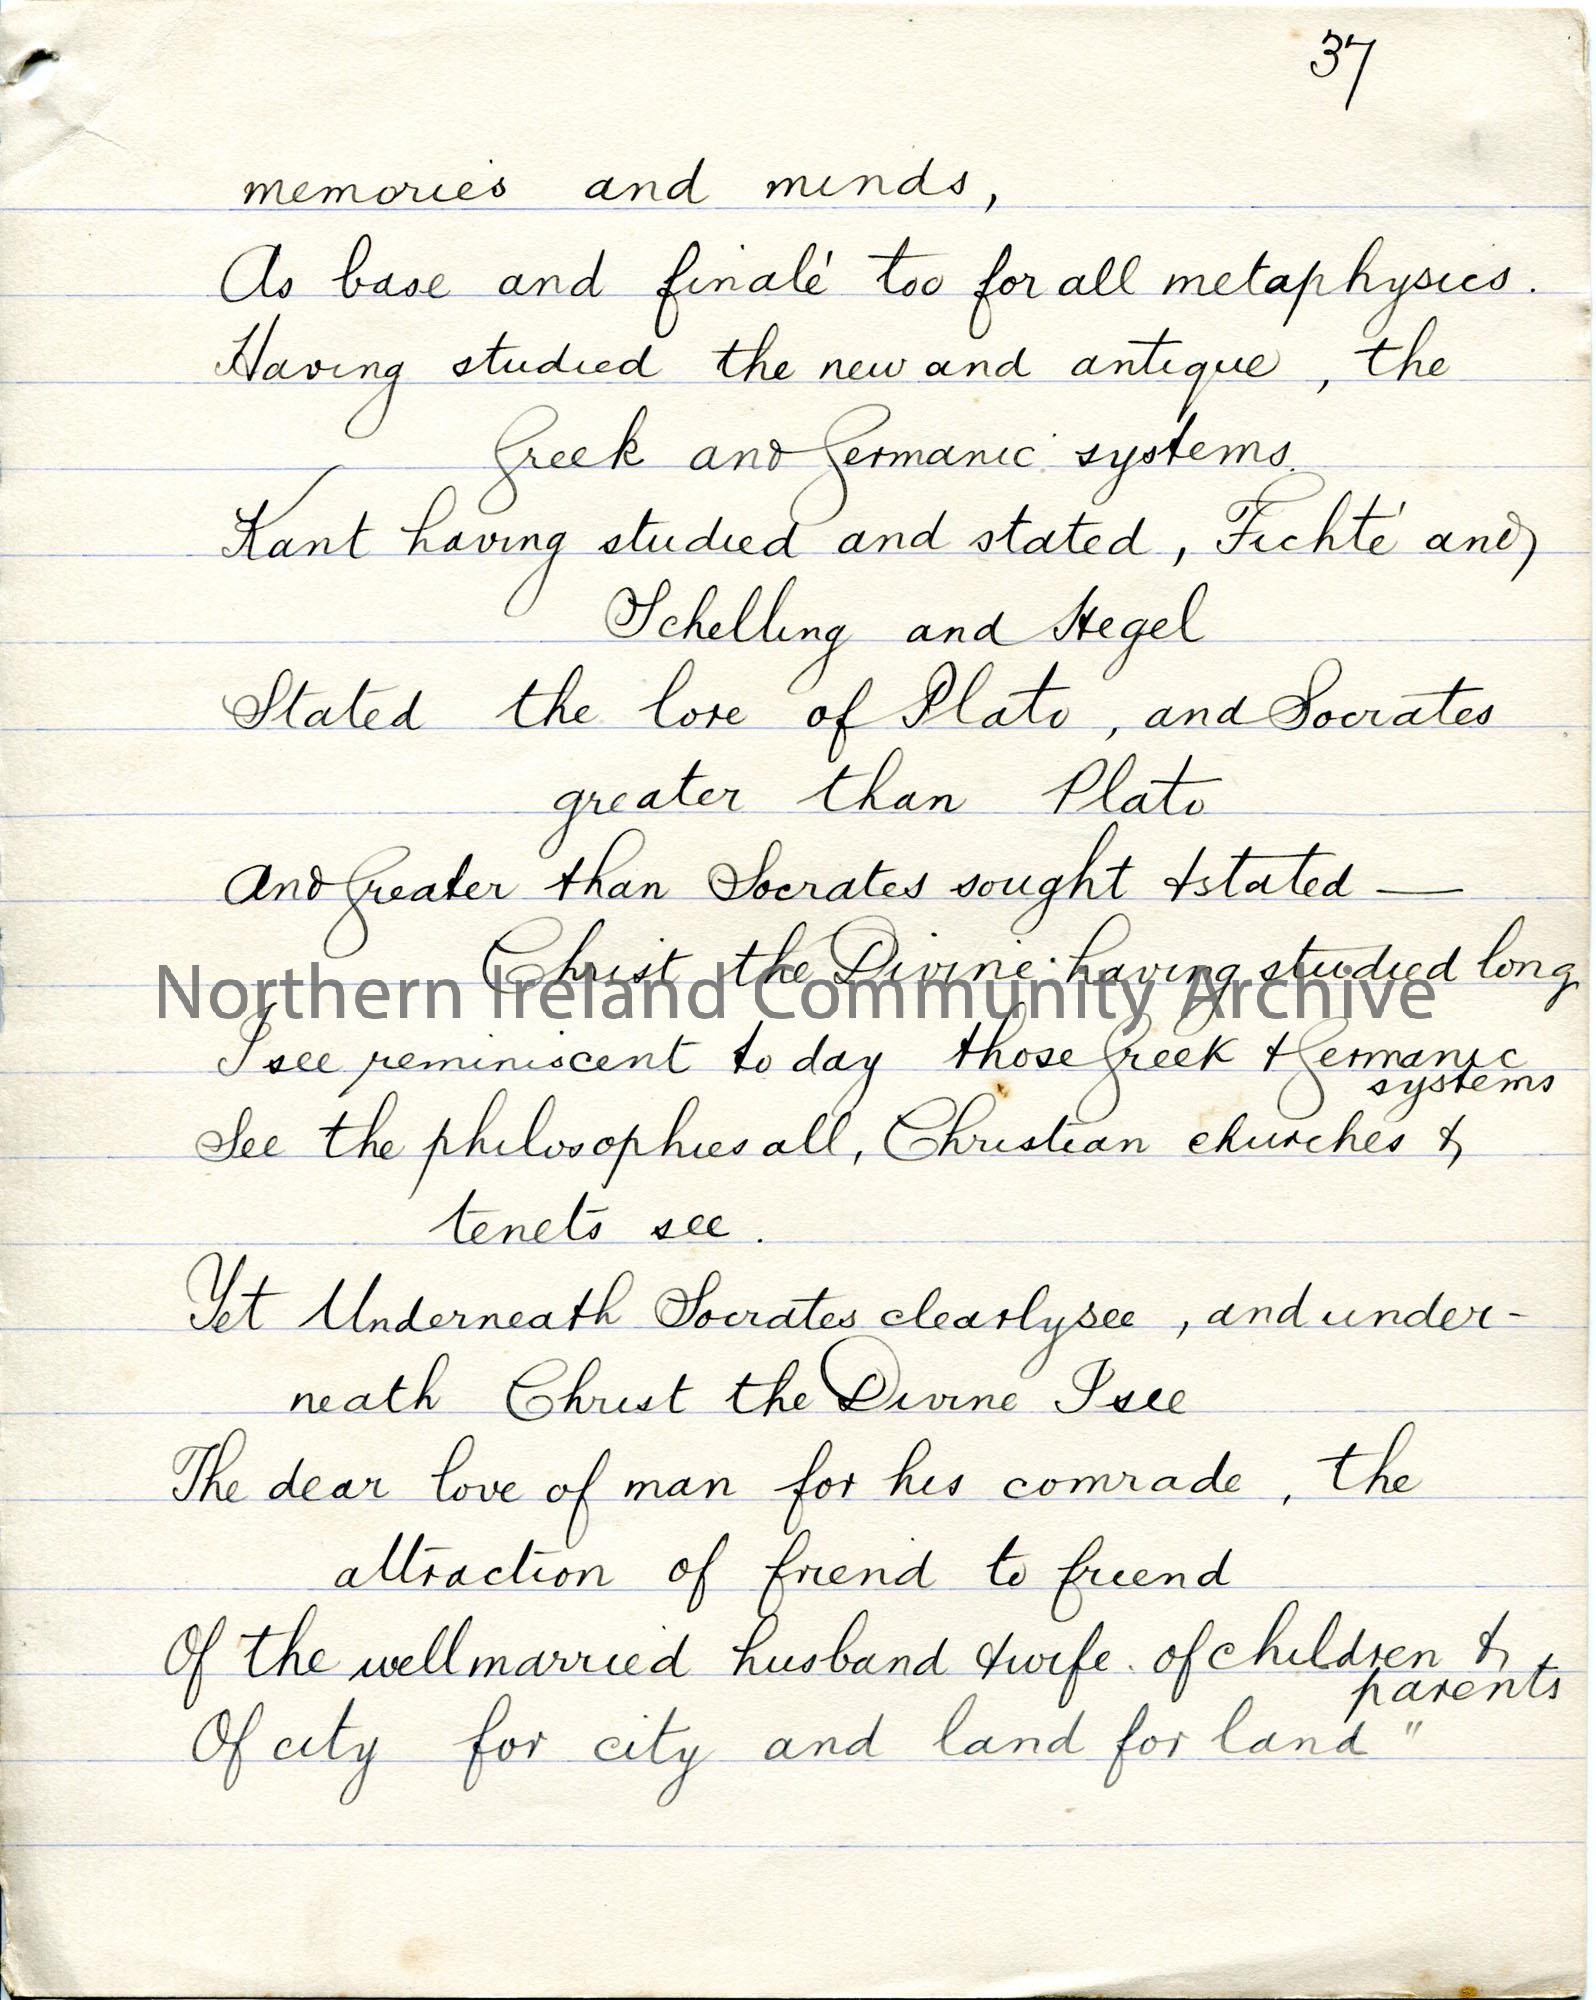 37
memories and minds,
As base and finalé too for all metaphysics.
Having studied the new and antique, the
Greek and Germanic systems.
Kant having studied and stated, Fichté and
Schelling and Hegel
Stated the lore of Plato, and Socrates
greater than Plato
And Greater than Socrates sought & stated —
Christ the Divine having studied long
Northern Ireland Community Archive
I see reminiscent to day those Greek & Germanic
systems
See the philosophies all, Christian churches &
tenets see.
Yet Underneath Socrates clearly see, and under-
neath Christ the Divine I see
The dear love of man for his comrade, the
attraction of friend to friend
Of the well married husband & wife. of children &
parents
Of city for city and land for land"